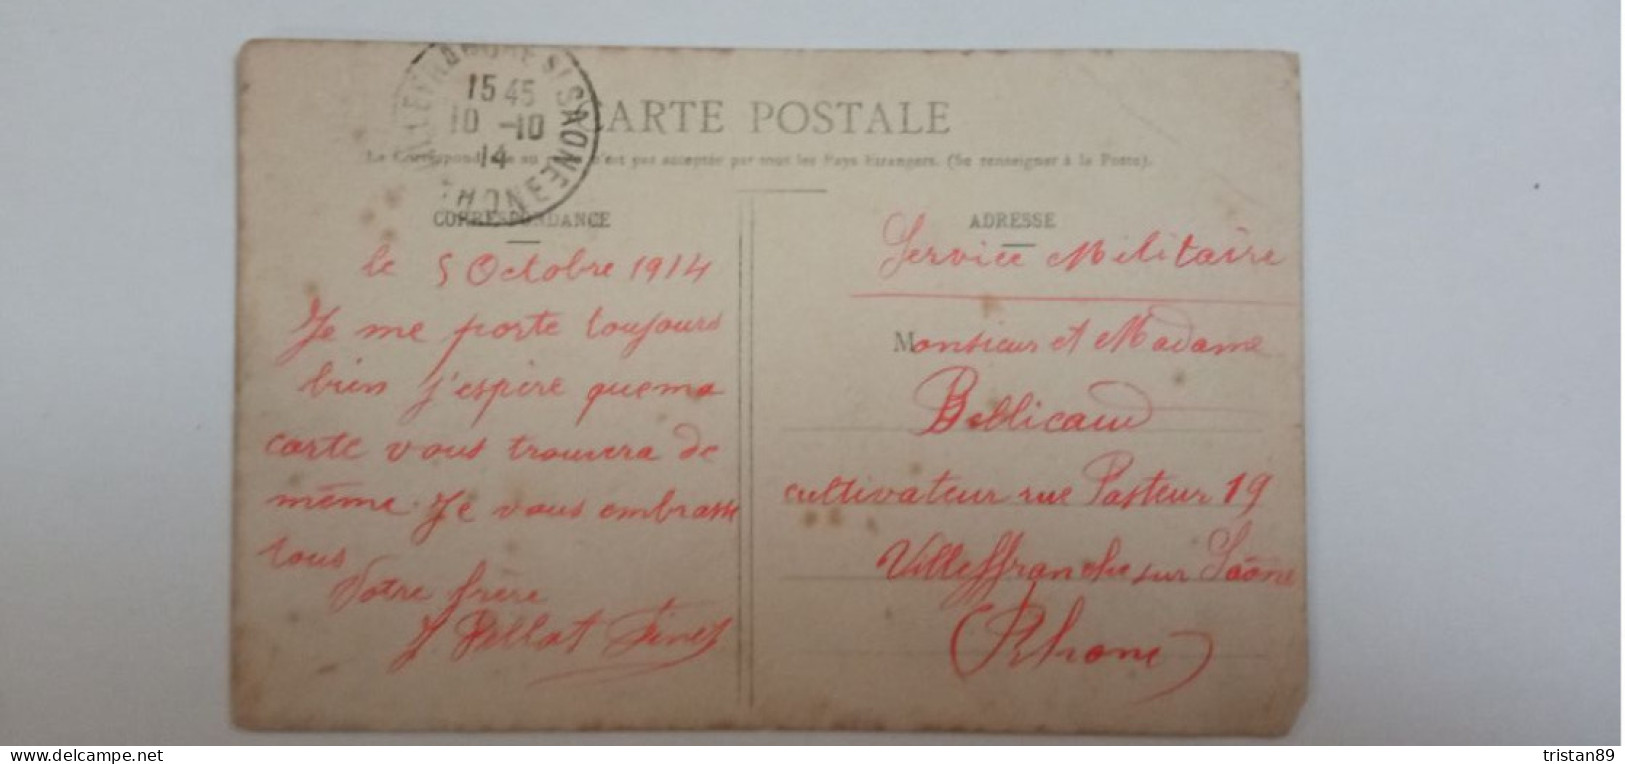 VILLEFRANCHE S/ SAONE
15 45
10 -10
14
RHONE
CARTE POSTALE
La Correspondance au n'est pas acceptée par tous les Pays Étrangers. (Se renseigner à la Poste).
CORRESPONDANCE
le 5 Octobre 1914
Je me porte toujours
bien j'espère que ma
carte vous trouvera de
même. Je vous embrasse
tous
Votre frère
J Pellat Finet
ADRESSE
Service Militaire
Monsieur et Madame
Bellicaud
cultivateur rue Pasteur 19
Villeffranche sur Saône
(Rhone)
www.delcampe.net
tristan89